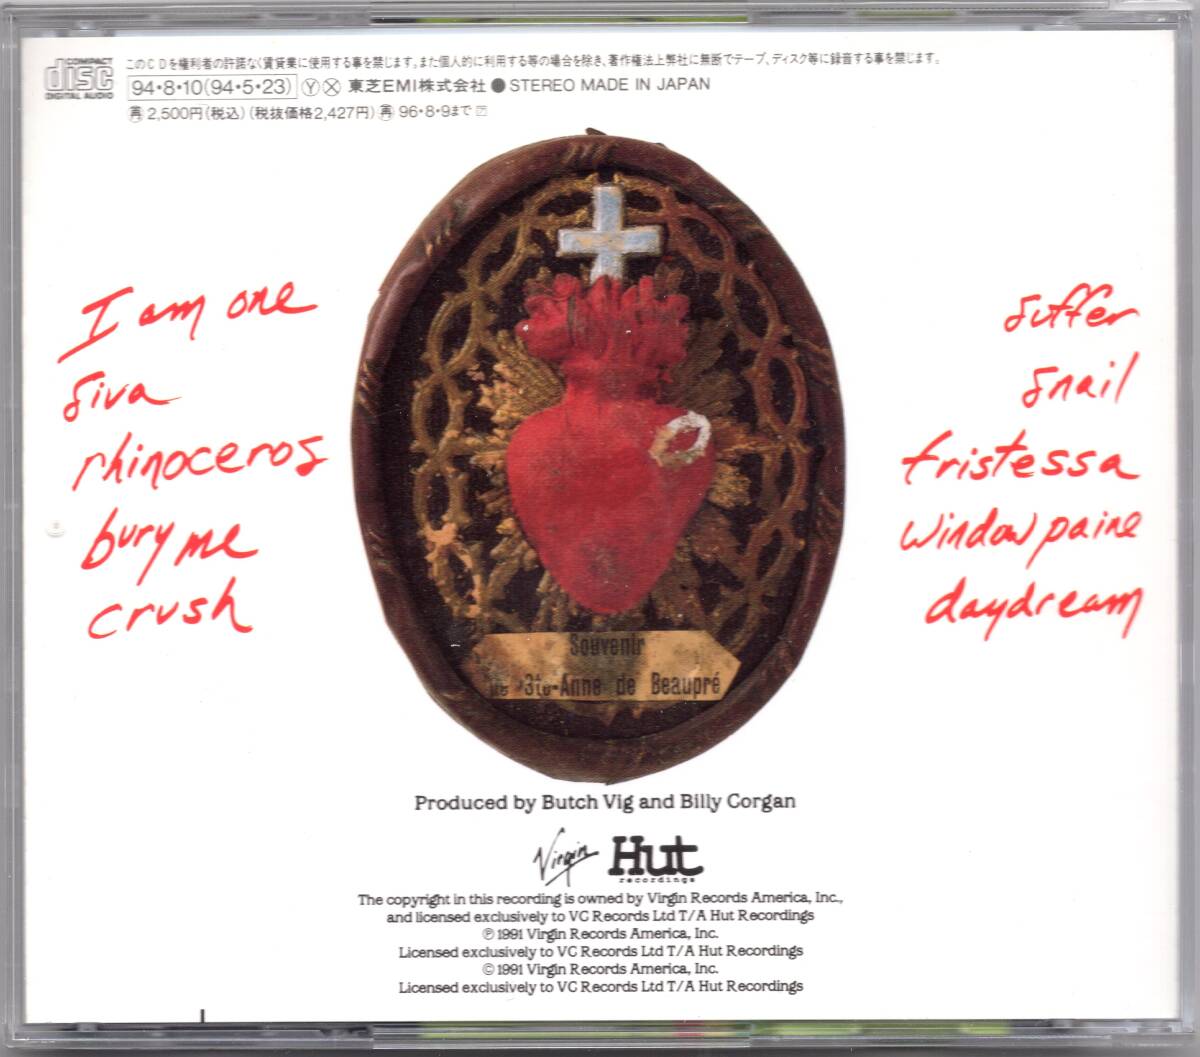 COMPACT
disc
DIGITAL AUDIO
このCDを権利者の許諾なく賃貸業に使用する事を禁じます。また個人的に利用する等の場合を除き、著作権法上弊社に無断でテープ、ディスク等に録音する事を禁じます。
94・8・10(94・5・23) Ⓨ Ⓧ 東芝EMI株式会社 ● STEREO MADE IN JAPAN
㋐ 2,500円(税込)(税抜価格2,427円) 再 96・8・9まで
I am one
siva
rhinoceros
bury me
crush
suffer
snail
tristessa
window paine
daydream
Souvenir
de Ste-Anne de Beaupré
Produced by Butch Vig and Billy Corgan
Virgin
Hut
recordings
The copyright in this recording is owned by Virgin Records America, Inc.,
and licensed exclusively to VC Records Ltd T/A Hut Recordings
℗ 1991 Virgin Records America, Inc.
Licensed exclusively to VC Records Ltd T/A Hut Recordings
© 1991 Virgin Records America, Inc.
Licensed exclusively to VC Records Ltd T/A Hut Recordings